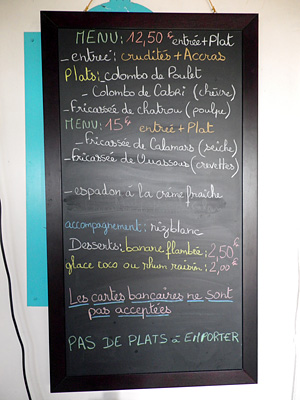 MENU: 12,50 € entrée + Plat
_ entreé: crudités + Accras
Plats: colombo de Poulet
_ Colombo de CabRi (chèvre)
_ Fricassée de chatrou (poulpe)
MENU: 15 € entrée + Plat
_ Fricassée de Calamars (seiche)
_ Fricassée de Ouassous (crevettes)
_ espadon à la crème fraîche
accompagnement: riz blanc
Desserts: banane flambée: 2,50 €
glace coco ou rhum raisin: 2,00 €
Les cartes bancaires ne sont
pas acceptées
PAS DE PLATS à EMPORTER